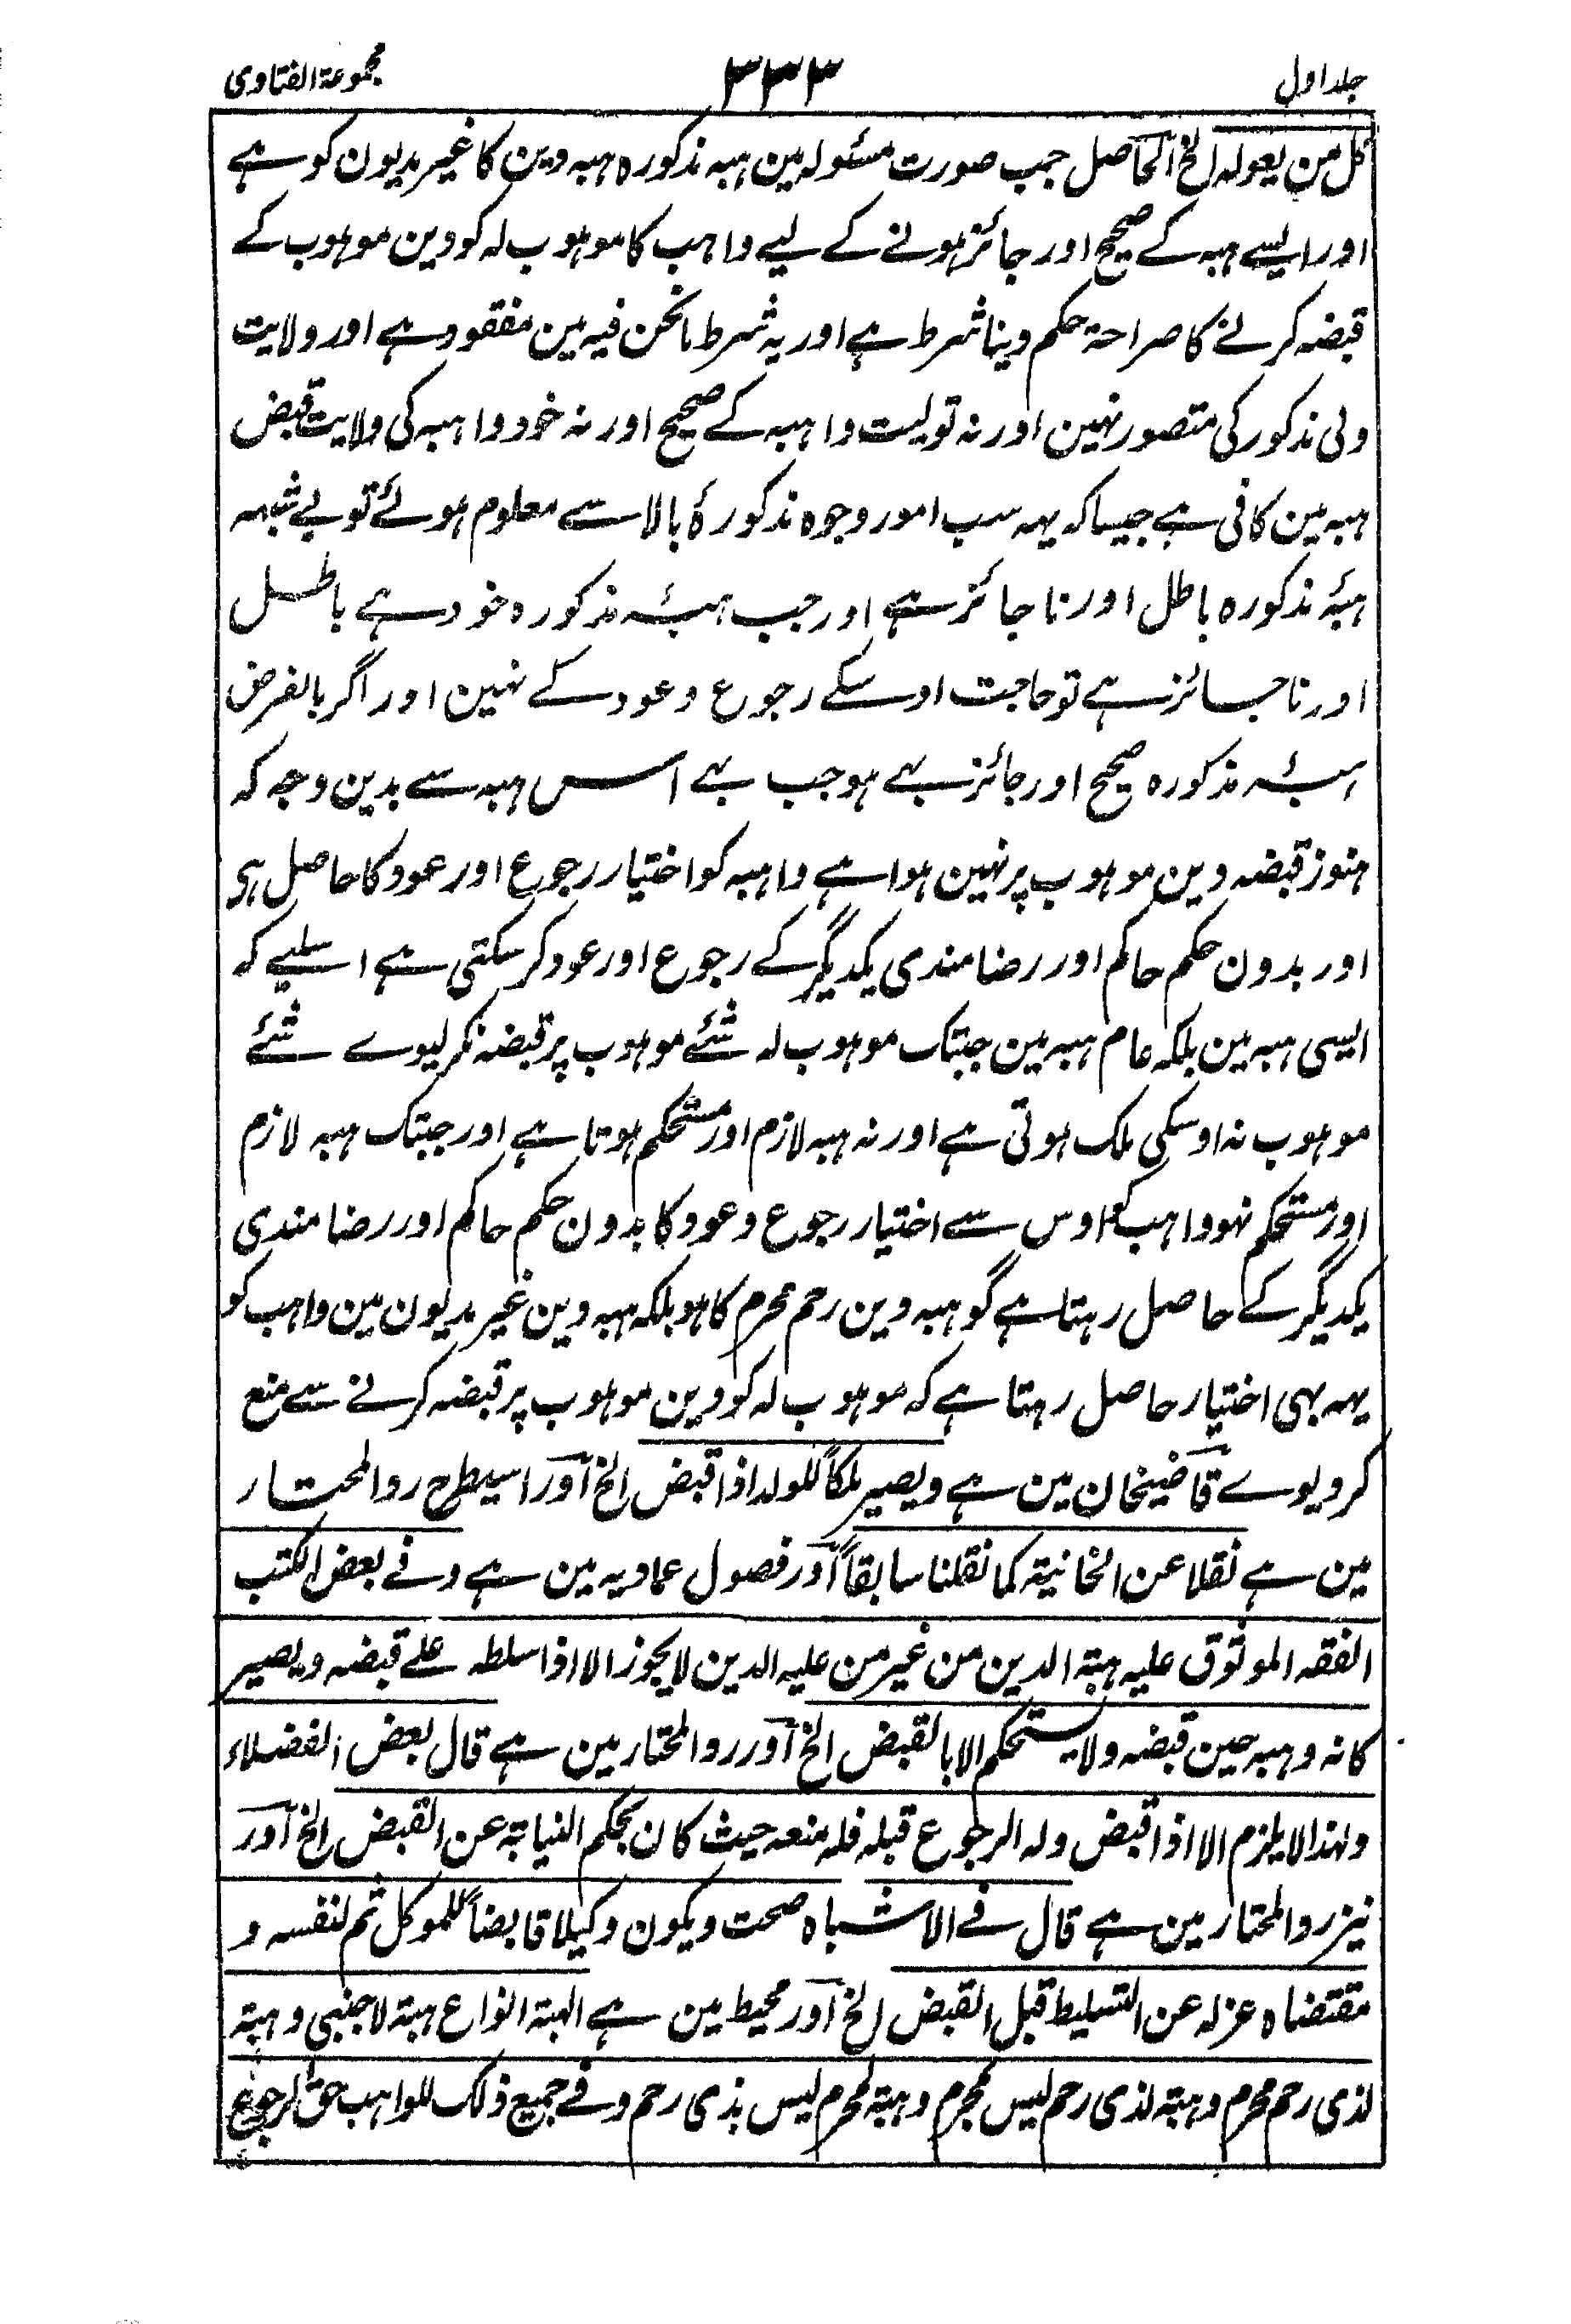 جلد اول
۳۳۳
مجموعۃ الفتاوی
کل من یعولہ الخ الحاصل جب صورت مسئولہ مین ہبہ مذکورہ ہبہ دین کا غیر مدیون کو ہے
اور ایسے ہبہ کے صحیح اور جائز ہونے کے لیے واہب کا موہوب لہ کو دین موہوب کے
قبضہ کرنے کا صراحۃ حکم دینا شرط ہے اور یہ شرط مانحن فیہ مین مفقود ہے اور ولایت
ولی مذکور کی متصور نہین اور نہ تولیت واہبہ کے صحیح اور نہ خود واہبہ کی ولایت قبض
ہبہ مین کافی ہے جیسا کہ یہہ سب امور وجوہ مذکورۂ بالا سے معلوم ہوئے تو بے شبہہ
ہبۂ مذکورہ باطل اور ناجائز ہے اور جب ہبۂ مذکورہ خود ہے باطل
اور ناجائز ہے تو حاجت اوسکے رجوع وعود کے نہین اور اگر بالفرض
ہبۂ مذکورہ صحیح اور جائز بہے ہو جب بہے اس ہبہ سے بدین وجہ کہ
ہنوز قبضہ دین موہوب پر نہین ہوا ہے واہبہ کو اختیار رجوع اور عود کا حاصل ہی
اور بدون حکم حاکم اور رضامندی یکدیگر کے رجوع اور عود کر سکتی ہے اسلیے کہ
ایسی ہبہ مین بلکہ عام ہبہ مین جبتک موہوب لہ شئے موہوب پر قبضہ نکر لیوے شئے
موہوب نہ اوسکی ملک ہوتی ہے اور نہ ہبہ لازم اور مستحکم ہوتا ہے اور جبتک ہبہ لازم
اور مستحکم نہو واہب کو اوس سے اختیار رجوع وعود کا بدون حکم حاکم اور رضامندی
یکدیگر کے حاصل رہتا ہے گو ہبہ دین رحم محرم کا ہو بلکہ ہبہ دین غیر مدیون مین واہب کو
یہہ بہی اختیار حاصل رہتا ہے کہ موہوب لہ کو دین موہوب پر قبضہ کرنے سے منع
کر دیوے قاضیخان مین ہے ویصیر ملکاً للولد اذا قبض الخ اور اسیطرح ردالمحتار
مین ہے نقلا عن الخانیۃ کما نقلنا سابقاً اور فصول عمادیہ مین ہے وفے بعض الکتب
الفقہ الموثوق علیہ ہبۃ الدین من غیر من علیہ الدین لایجوز الا اذا سلطہ علے قبضہ ویصیر
کانہ وہبہ حین قبضہ ولا یستحکم الا بالقبض الخ اور ردالمحتار مین ہے قال بعض الفضلاء
ولہذا لا یلزم الا اذا قبض ولہ الرجوع قبلہ فلہ منعہ حیث کان بحکم النیابۃ عن القبض الخ اور
نیز ردالمحتار مین ہے قال فے الاشباہ صحت ویکون وکیلا قابضاً للموکل ثم لنفسہ و
مقتضاہ عزلہ عن التسلیط قبل القبض الخ اور محیط مین ہے الہبۃ انواع ہبۃ لاجنبی وہبۃ
لذی رحم محرم وہبۃ لذی رحم لیس بمحرم وہبۃ لمحرم لیس بذی رحم وفے جمیع ذلک للواہب حق الرجوع